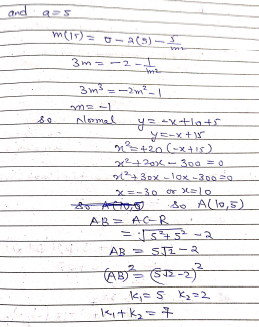 and a=5
m(15) = 0-2(5) - 5/m²
3m = -2 - 1/m²
3m³ = -2m²-1
m=-1
so Normal y=-x+10+5
y=-x+15
x²=+20(-x+15)
x²+20x-300=0
x²+30x-10x-300=0
x=-30 or x=10
So A(10,5) So A(10,5)
AB = AC-R
= √5²+5² -2
AB = 5√2-2
(AB)² = (5√2-2)²
K₁=5 K₂=2
K₁+K₂=7